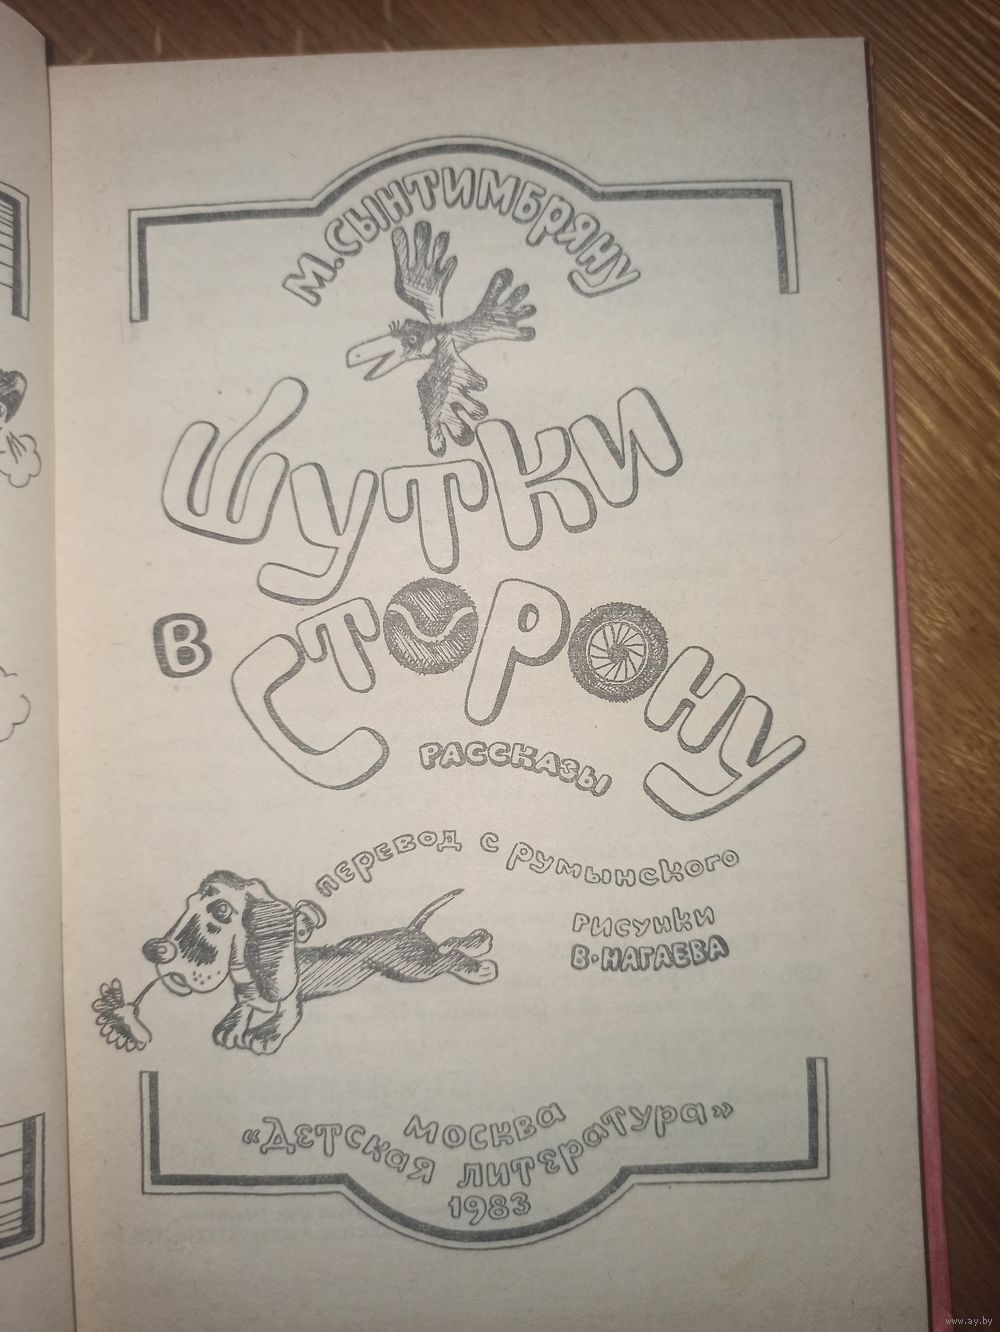 М. СЫНТИМБРЯНУ
ШУТКИ
В СТОРОНУ
РАССКАЗЫ
ПЕРЕВОД С РУМЫНСКОГО
РИСУНКИ
В. НАГАЕВА
МОСКВА
«ДЕТСКАЯ ЛИТЕРАТУРА»
1983
www.ay.by